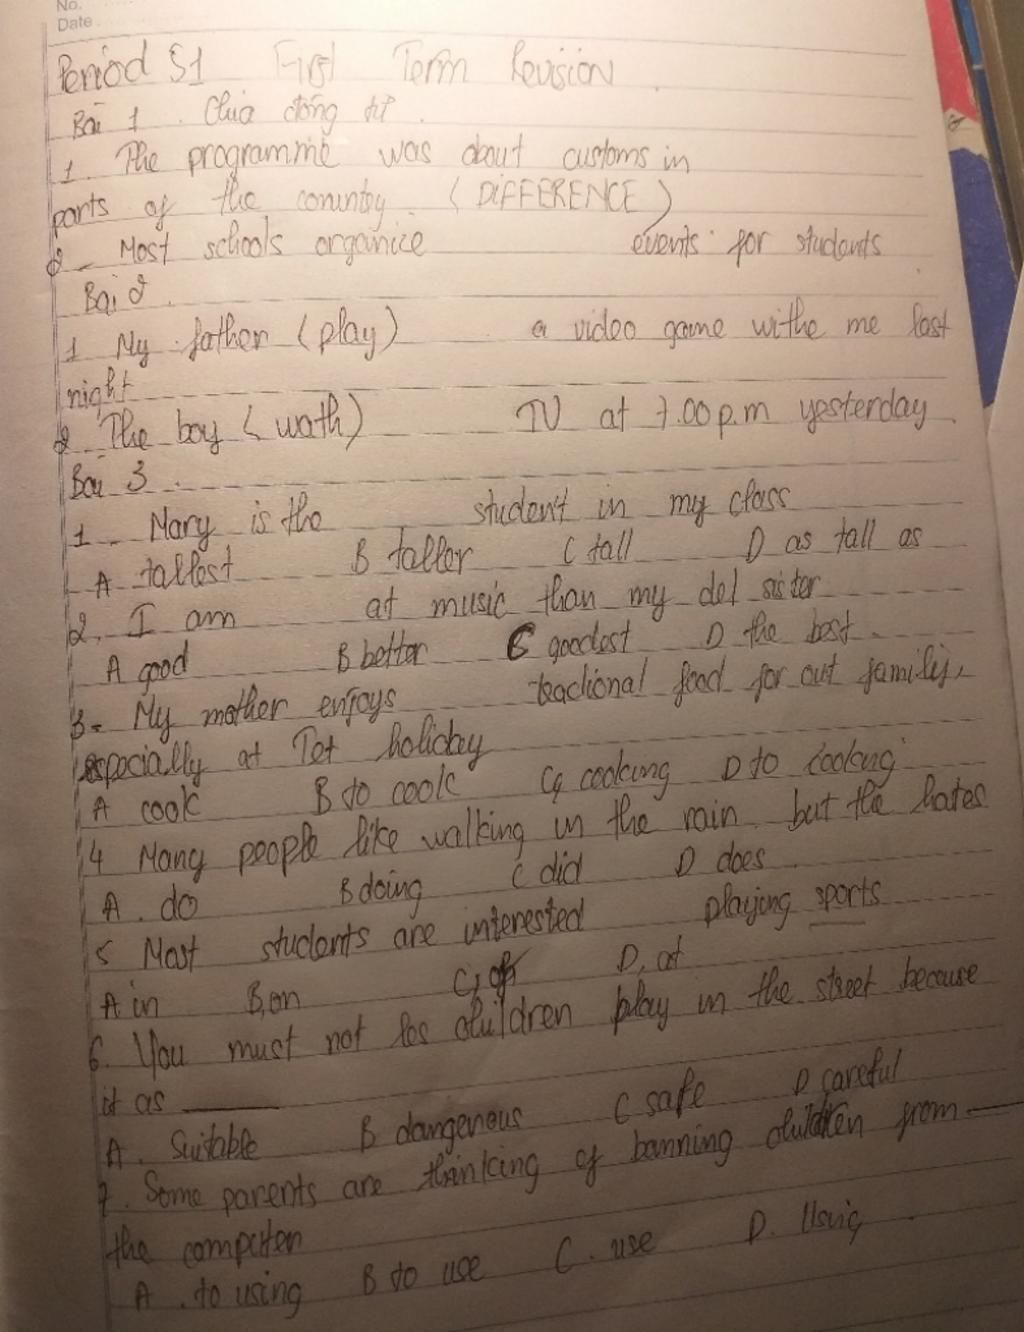 No.
Date
Period 51 First Term Revision
Bài 1. Chia động từ.
1. The programme was about customs in
parts of the conuntry. (DIFFERENCE)
2. Most schools organice events for students
Bài 2.
1 My father (play) a video game withe me last
night
2. The boy (wath) TV at 7.00 p.m yesterday.
Bài 3.
1. Mary is the student in my class
A tallest B taller C tall D as tall as
2. I am at music than my del sister
A good B better C goodest D the best.
3- My mother enjoys teactional food for out family,
especially at Tet holiday
A cook B to cook C, cooking D to cooking
4 Many people like walking in the rain but the hates
A. do B doing C did D does
5 Most students are interested playing sports
A in B, on C, of D, at
6. You must not les children play in the street because
it as
A. Suitable B dangerous C safe D careful
7. Some parents are thinking of banning children from
the computer
A. to using B to use C. use D. Using